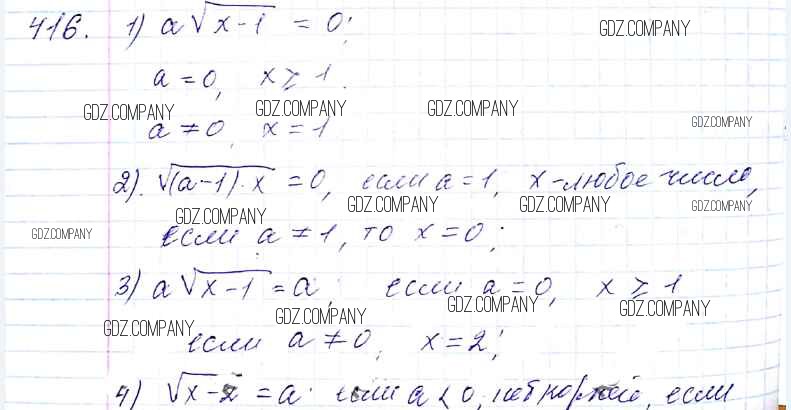 416. 1) a√(x-1) = 0; GDZ.COMPANY
a = 0, x ⩾ 1.
GDZ.COMPANY GDZ.COMPANY GDZ.COMPANY GDZ.COMPANY
a ≠ 0, x = 1
2). √((a-1)·x = 0, если a = 1, x - любое число,
GDZ.COMPANY GDZ.COMPANY GDZ.COMPANY GDZ.COMPANY GDZ.COMPANY
если a ≠ 1, то x = 0;
3) a√(x-1) = a, если a = 0, x ⩾ 1
GDZ.COMPANY GDZ.COMPANY GDZ.COMPANY GDZ.COMPANY
если a ≠ 0, x = 2;
4) √(x-2) = a. если a < 0, нет корней, если